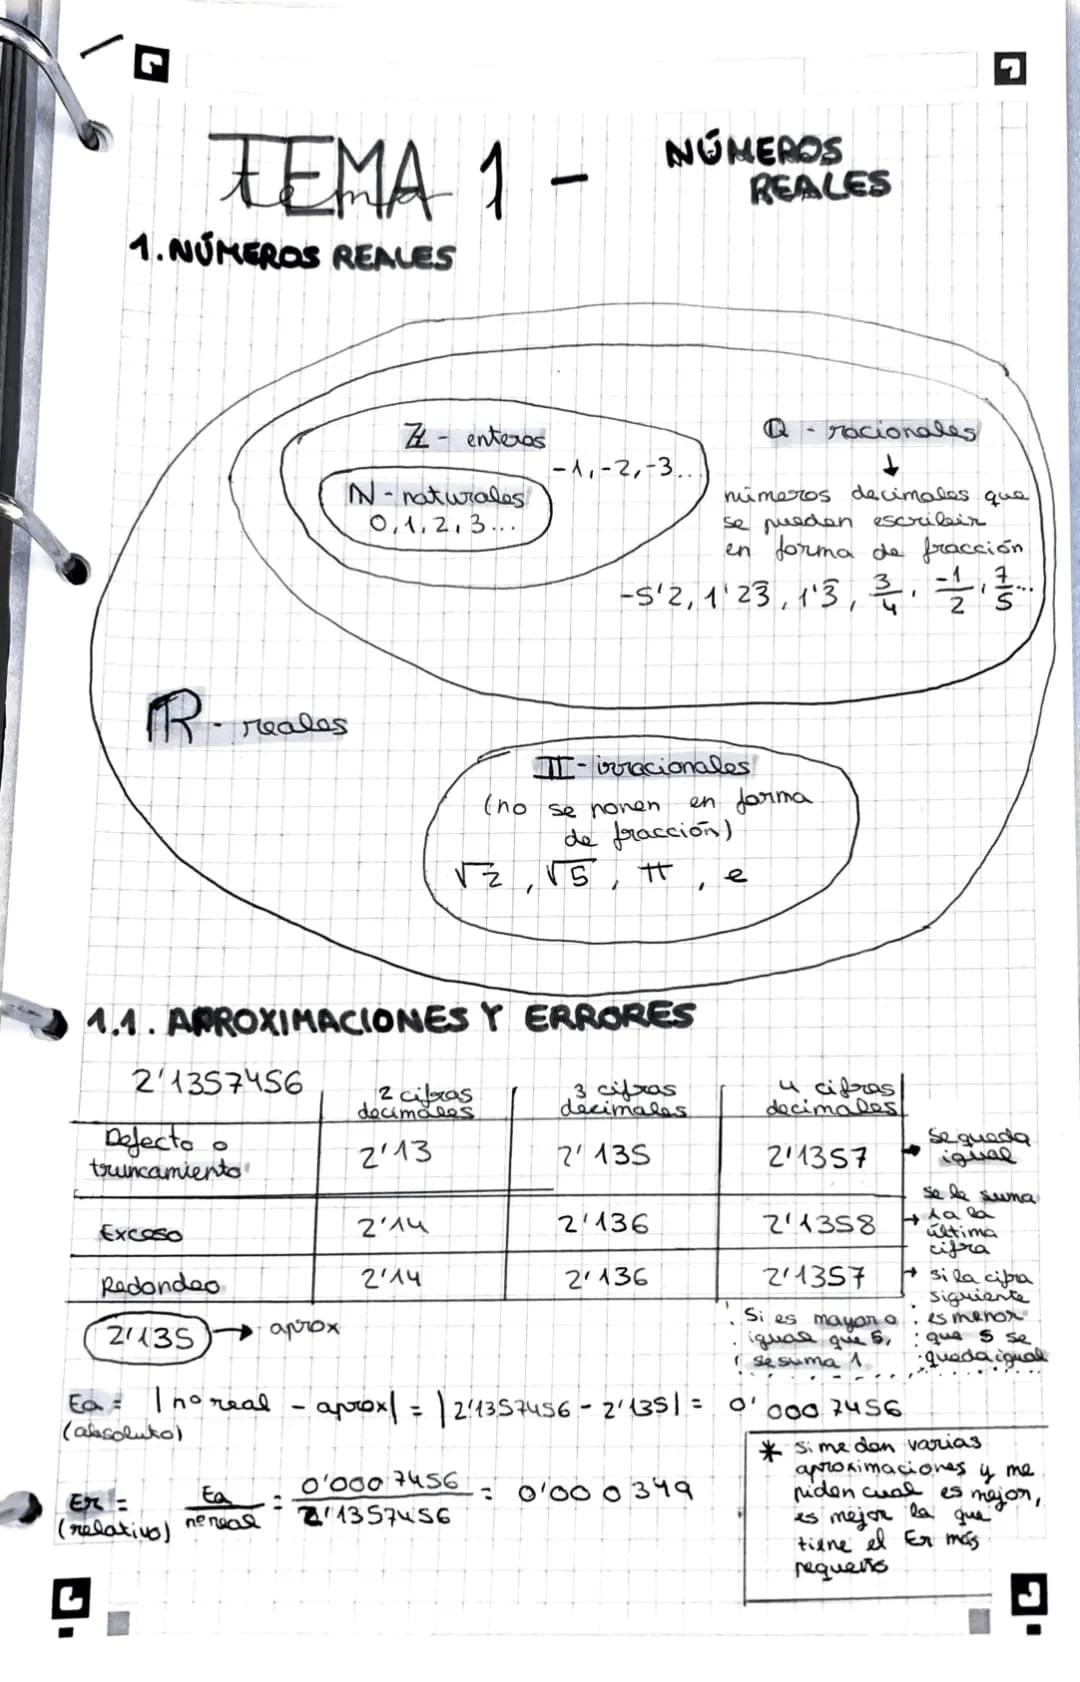 TEMA 1 - NÚMEROS
REALES
1. NÚMEROS REALES
ℤ - enteros
-1, -2, -3...
ℕ - naturales
0, 1, 2, 3...
ℚ - racionales
↓
números decimales que
se pueden escribir
en forma de fracción
-5'2, 1'23, 1'3, 3/4, -1/2, 7/5...
ℝ - reales
𝕀 - irracionales
(no se ponen en forma
de fracción)
√2, √5, π, e
1.1. APROXIMACIONES Y ERRORES
2'1357456 | 2 cifras decimales | 3 cifras decimales | 4 cifras decimales
Defecto o truncamiento | 2'13 | 2'135 | 2'1357 → se queda igual
Exceso | 2'14 | 2'136 | 2'1358 → se le suma 1 a la última cifra
Redondeo | 2'14 | 2'136 | 2'1357 → si la cifra siguiente es menor que 5 se queda igual
Si es mayor o
igual que 5,
se suma 1
2'135 → aprox
Ea = |nº real - aprox| = |2'1357456 - 2'135| = 0'0007456
(absoluto)
Er = Ea / nº real = 0'0007456 / 2'1357456 = 0'000349
(relativo)
* Si me dan varias
aproximaciones y me
piden cual es mejor,
es mejor la que
tiene el Er más
pequeño